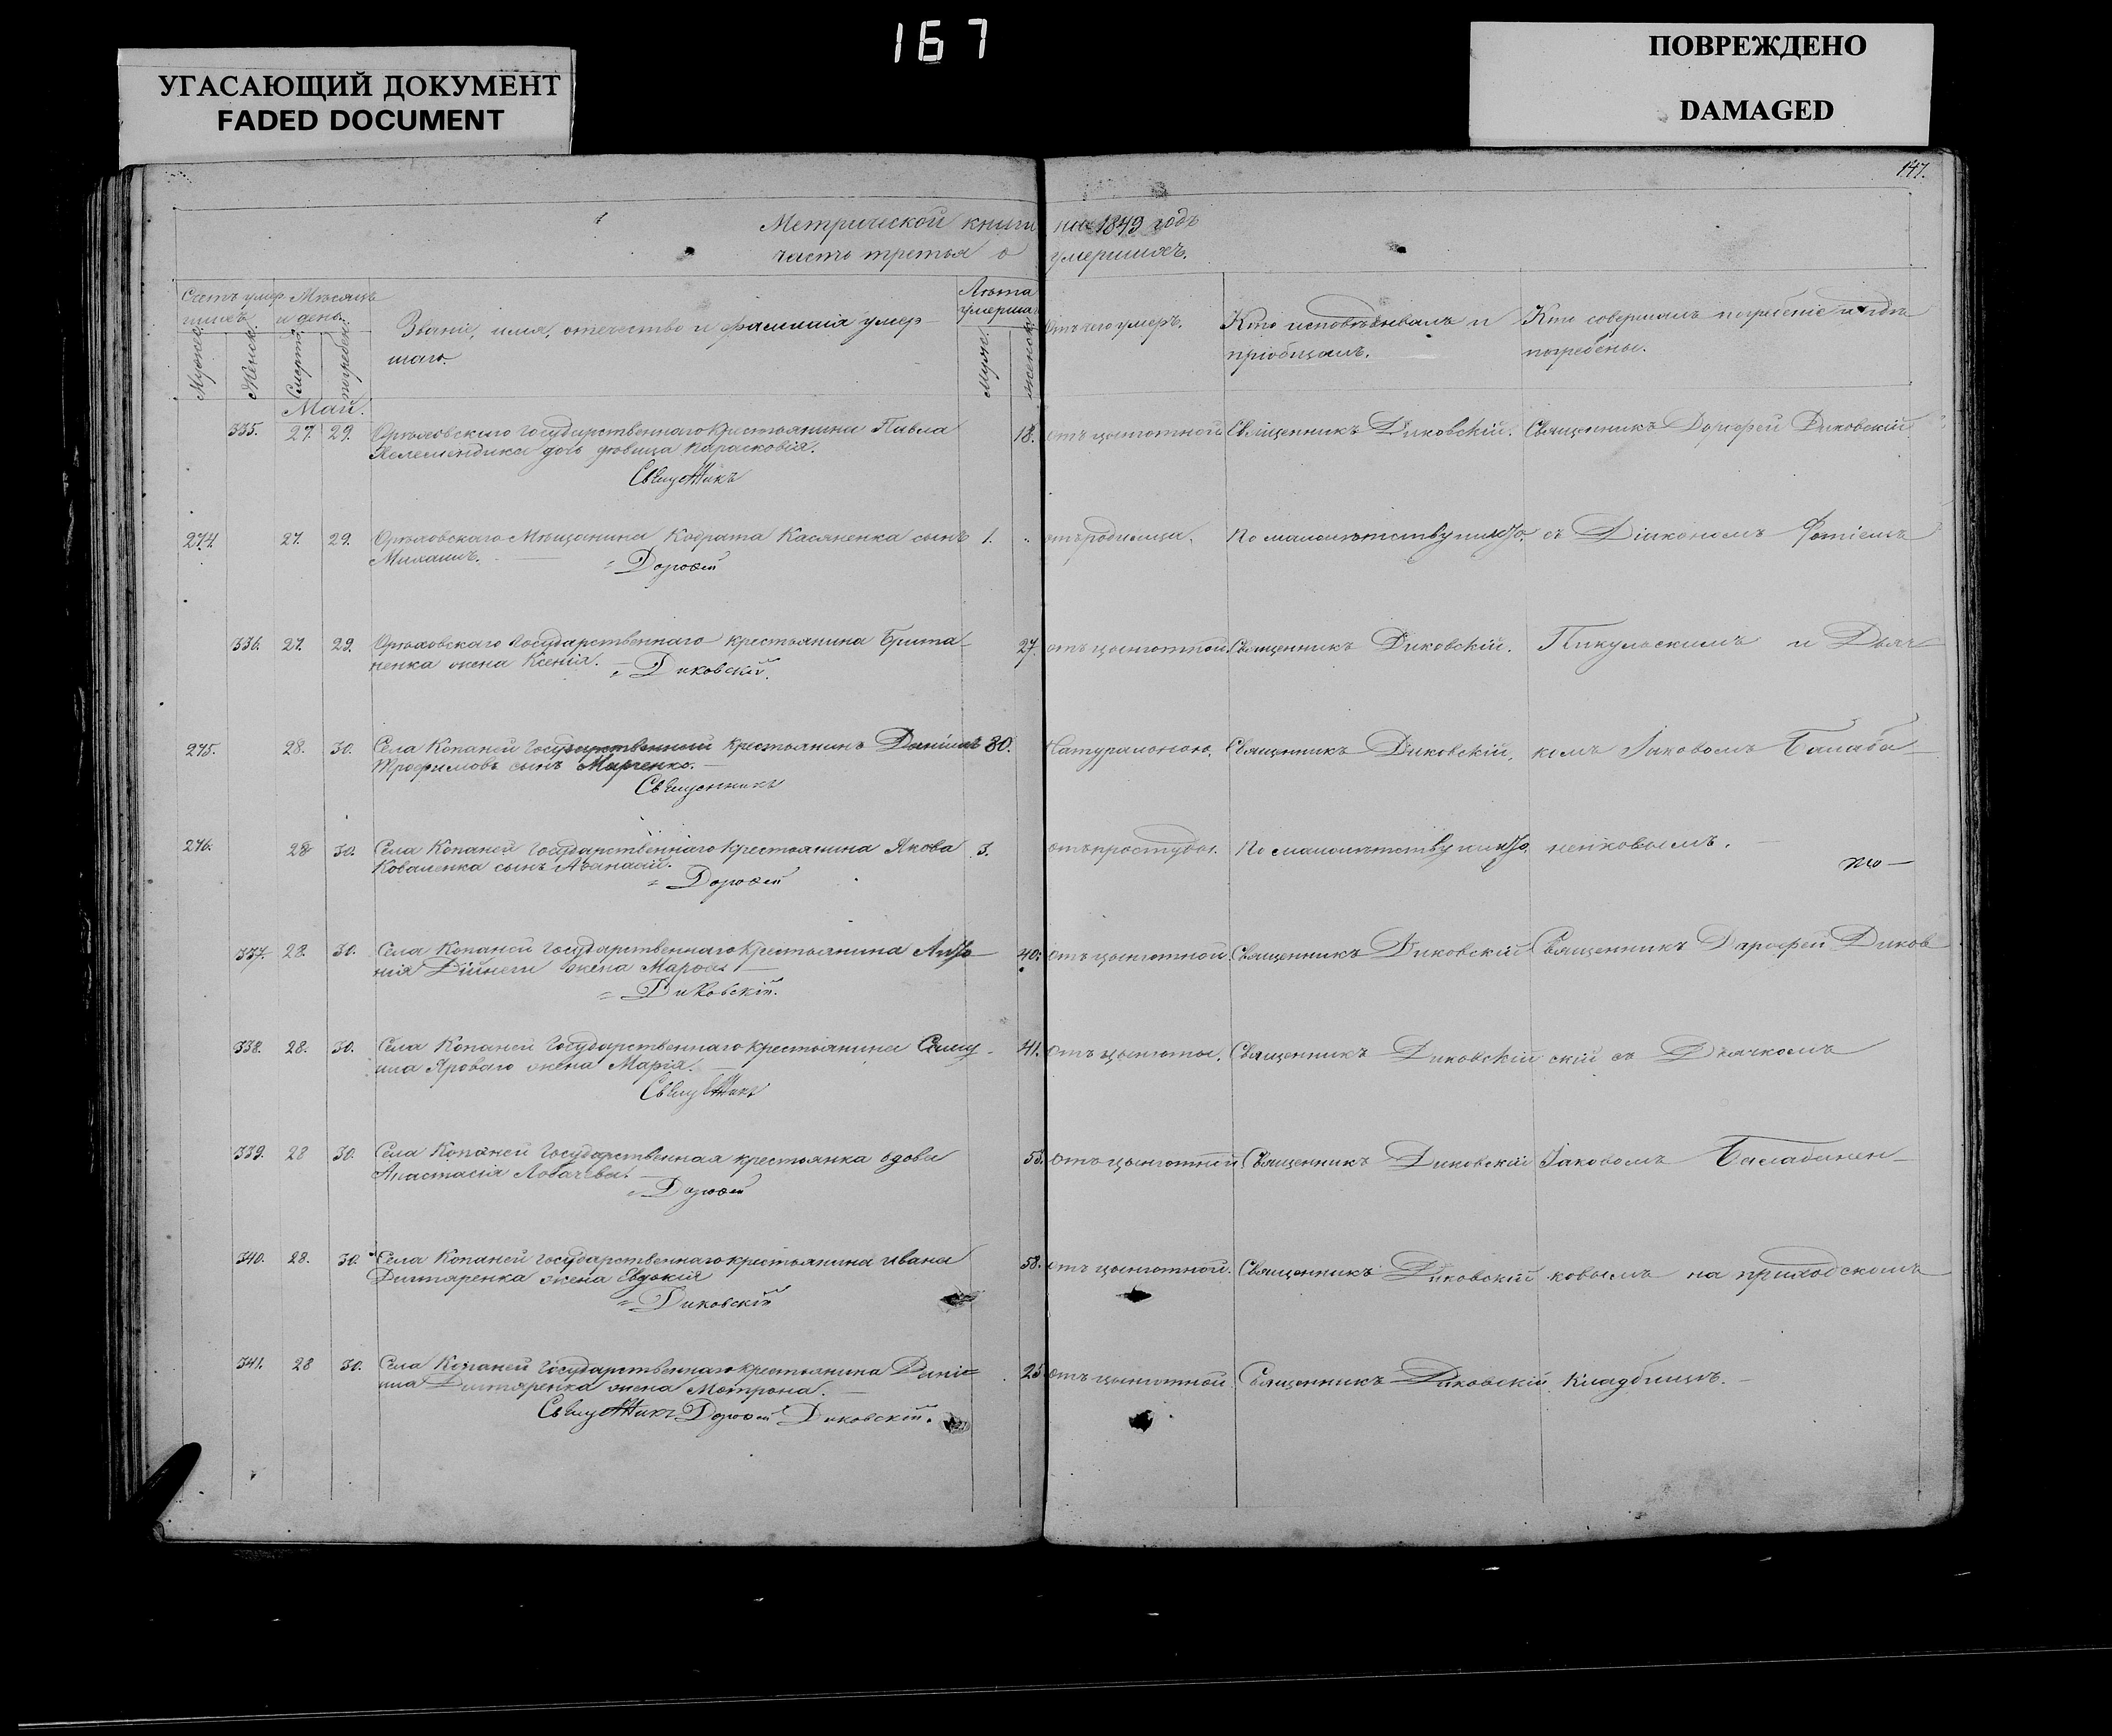 167
УГАСАЮЩИЙ ДОКУМЕНТ
FADED DOCUMENT
ПОВРЕЖДЕНО
DAMAGED
147.
Метрической книги на 1849 годъ
часть третья о умершихъ.
Счетъ умер
шихъ
Мужес.
Женск.
Мѣсяцъ
и день.
Смерти
погребен.
Званіе, имя, отечество и фамилія умер-
шаго.
Лѣта
умерша
Муже.
женска
Отъ чего умеръ.
Кто исповѣдывалъ и
пріобщалъ.
Кто совершалъ погребеніе и гдѣ
погребены.
Май.
335. 27. 29. Орѣховскаго Государственнаго Крестьянина Павла 18. отъ цынготной Священникъ Диковскій. Священникъ Дорофей Диковскій
дочь дѣвица Парасковія.
Священникъ
274. 27. 29. Орѣховскаго Мѣщанина Кодрата Касяненка сынъ 1. отъ родимца. По малолѣтству съ Діакономъ Фотіемъ
Михаилъ.
Дорофей
336. 27. 29. Орѣховскаго Государственнаго крестьянина Брита- 27. отъ цынготной Священникъ Диковскій. Пикульскимъ и Дьяч-
ненка жена Ксенія.
Диковскій.
275. 28. 30. Села Копаней Государственный крестьянинъ Даніилъ 80. Натуральною. Священникъ Диковскій, комъ Іаковомъ Балаба-
Трофимовъ сынъ Марченко.
Священникъ
276. 28 30. Села Копаней Государственнаго Крестьянина Якова 3. отъ простуды. По малолѣтству ненковымъ.
Коваленка сынъ Аѳанасій.
Дорофей
337. 28. 30. Села Копаней Государственнаго Крестьянина Анто- 40. отъ цынготной Священникъ Диковскій Священникъ Дорофей Диков
нія жена Марѳа
Диковскій.
338. 28. 30. Села Копаней Государственнаго Крестьянина 41. отъ цынготы. Священникъ Диковскій скій съ Дьячкомъ
ила Яроваго жена Марія.
Священникъ
339. 28 30. Села Копаней Государственная крестьянка вдова 55. отъ цынготной Священникъ Диковскій Іаковомъ Балабанен-
Анастасія Лобачева.
Дорофей
340. 28. 30. Села Копаней Государственнаго крестьянина Ивана 58. отъ цынготной. Священникъ Диковскій ковымъ на приходскомъ
Дигтяренка жена Евдокія
Диковскій
341. 28 30. Села Копаней Государственнаго крестьянина Дані- 25 отъ цынготной Священникъ Диковскій Кладбищѣ.
ила Дигтяренка жена Мотрона.
Священникъ Дорофей Диковскій.